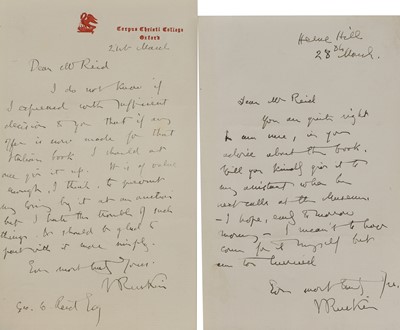 Corpus Christi College
Oxford
24th March
Dear Mr Reid
I do not know if
I expressed with sufficient
decision to you that if any
offer is ever made for that
Italian book I should at
once give it up. It is of value
enough I think to prevent
my losing by it at an auction
but I hate the trouble of such
things & should be glad to
part with it more simply.
Ever most truly Yours
J Ruskin
Geo. G Reid Esq
Herne Hill
28th March.
Dear Mr Reid
You are quite right
I am sure, in your
advice about the book.
Will you kindly give it to
my assistant when he
next calls at the Museum
– I hope, early tomorrow
morning – I meant to have
come for it myself but
am too hurried
Ever most truly Yrs.
J Ruskin